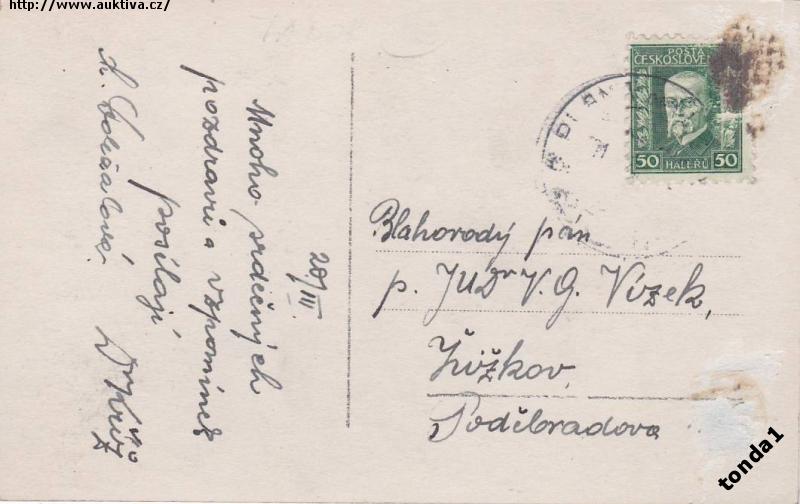 http://www.auktiva.cz/
28/III.
Mnoho srdečných
pozdravů a vzpomínek
posílají
POŠTA
ČESKOSLOVE
50 HALÉŘŮ 50
Blahorodý pán
p. JUDr V. G. Vízek,
Žižkov,
Poděbradova
tonda1